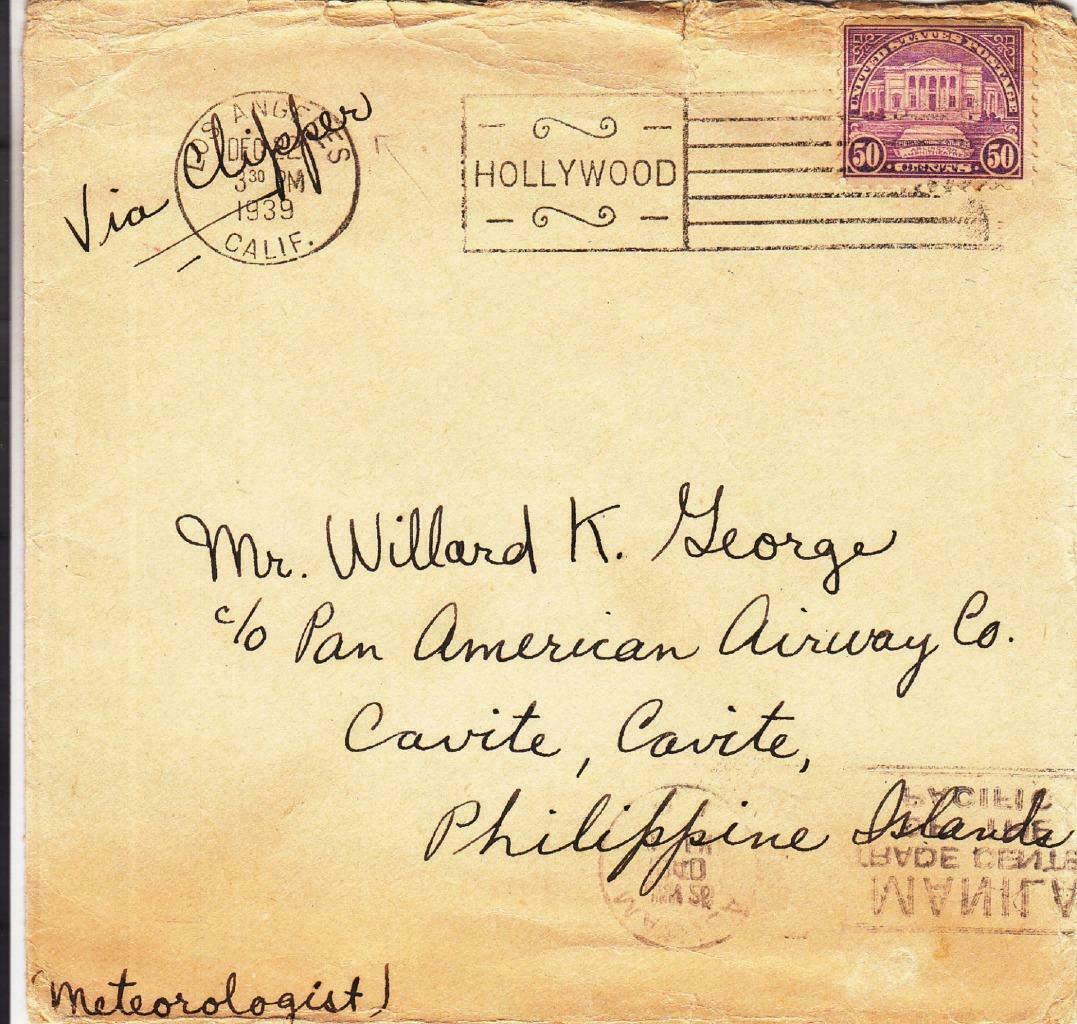 UNITED STATES POSTAGE
50 50
CENTS
LOS ANGELES
DEC 12
3 30 PM
1939
CALIF.
HOLLYWOOD
Via Clipper
Mr. Willard K. George
c/o Pan American Airway Co.
Cavite, Cavite,
Philippine Islands
MANILA
TRADE CENTE
PACIFIC
Meteorologist)